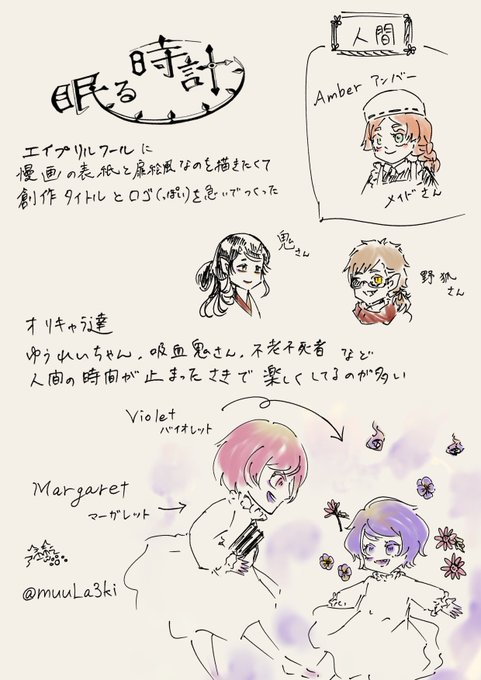 眠る時計
人間
Amber アンバー
メイドさん
エイプリルフールに
漫画の表紙と扉絵風なのを描きたくて
創作タイトルとロゴ(っぽい)を急いでつくった
鬼さん
野狐さん
オリキャラ達
ゆうれいちゃん、吸血鬼さん、不老不死者 など
人間の時間が止まったさきで楽しくしてるのが多い
Violet
バイオレット
Margaret
マーガレット
@muuLa3ki